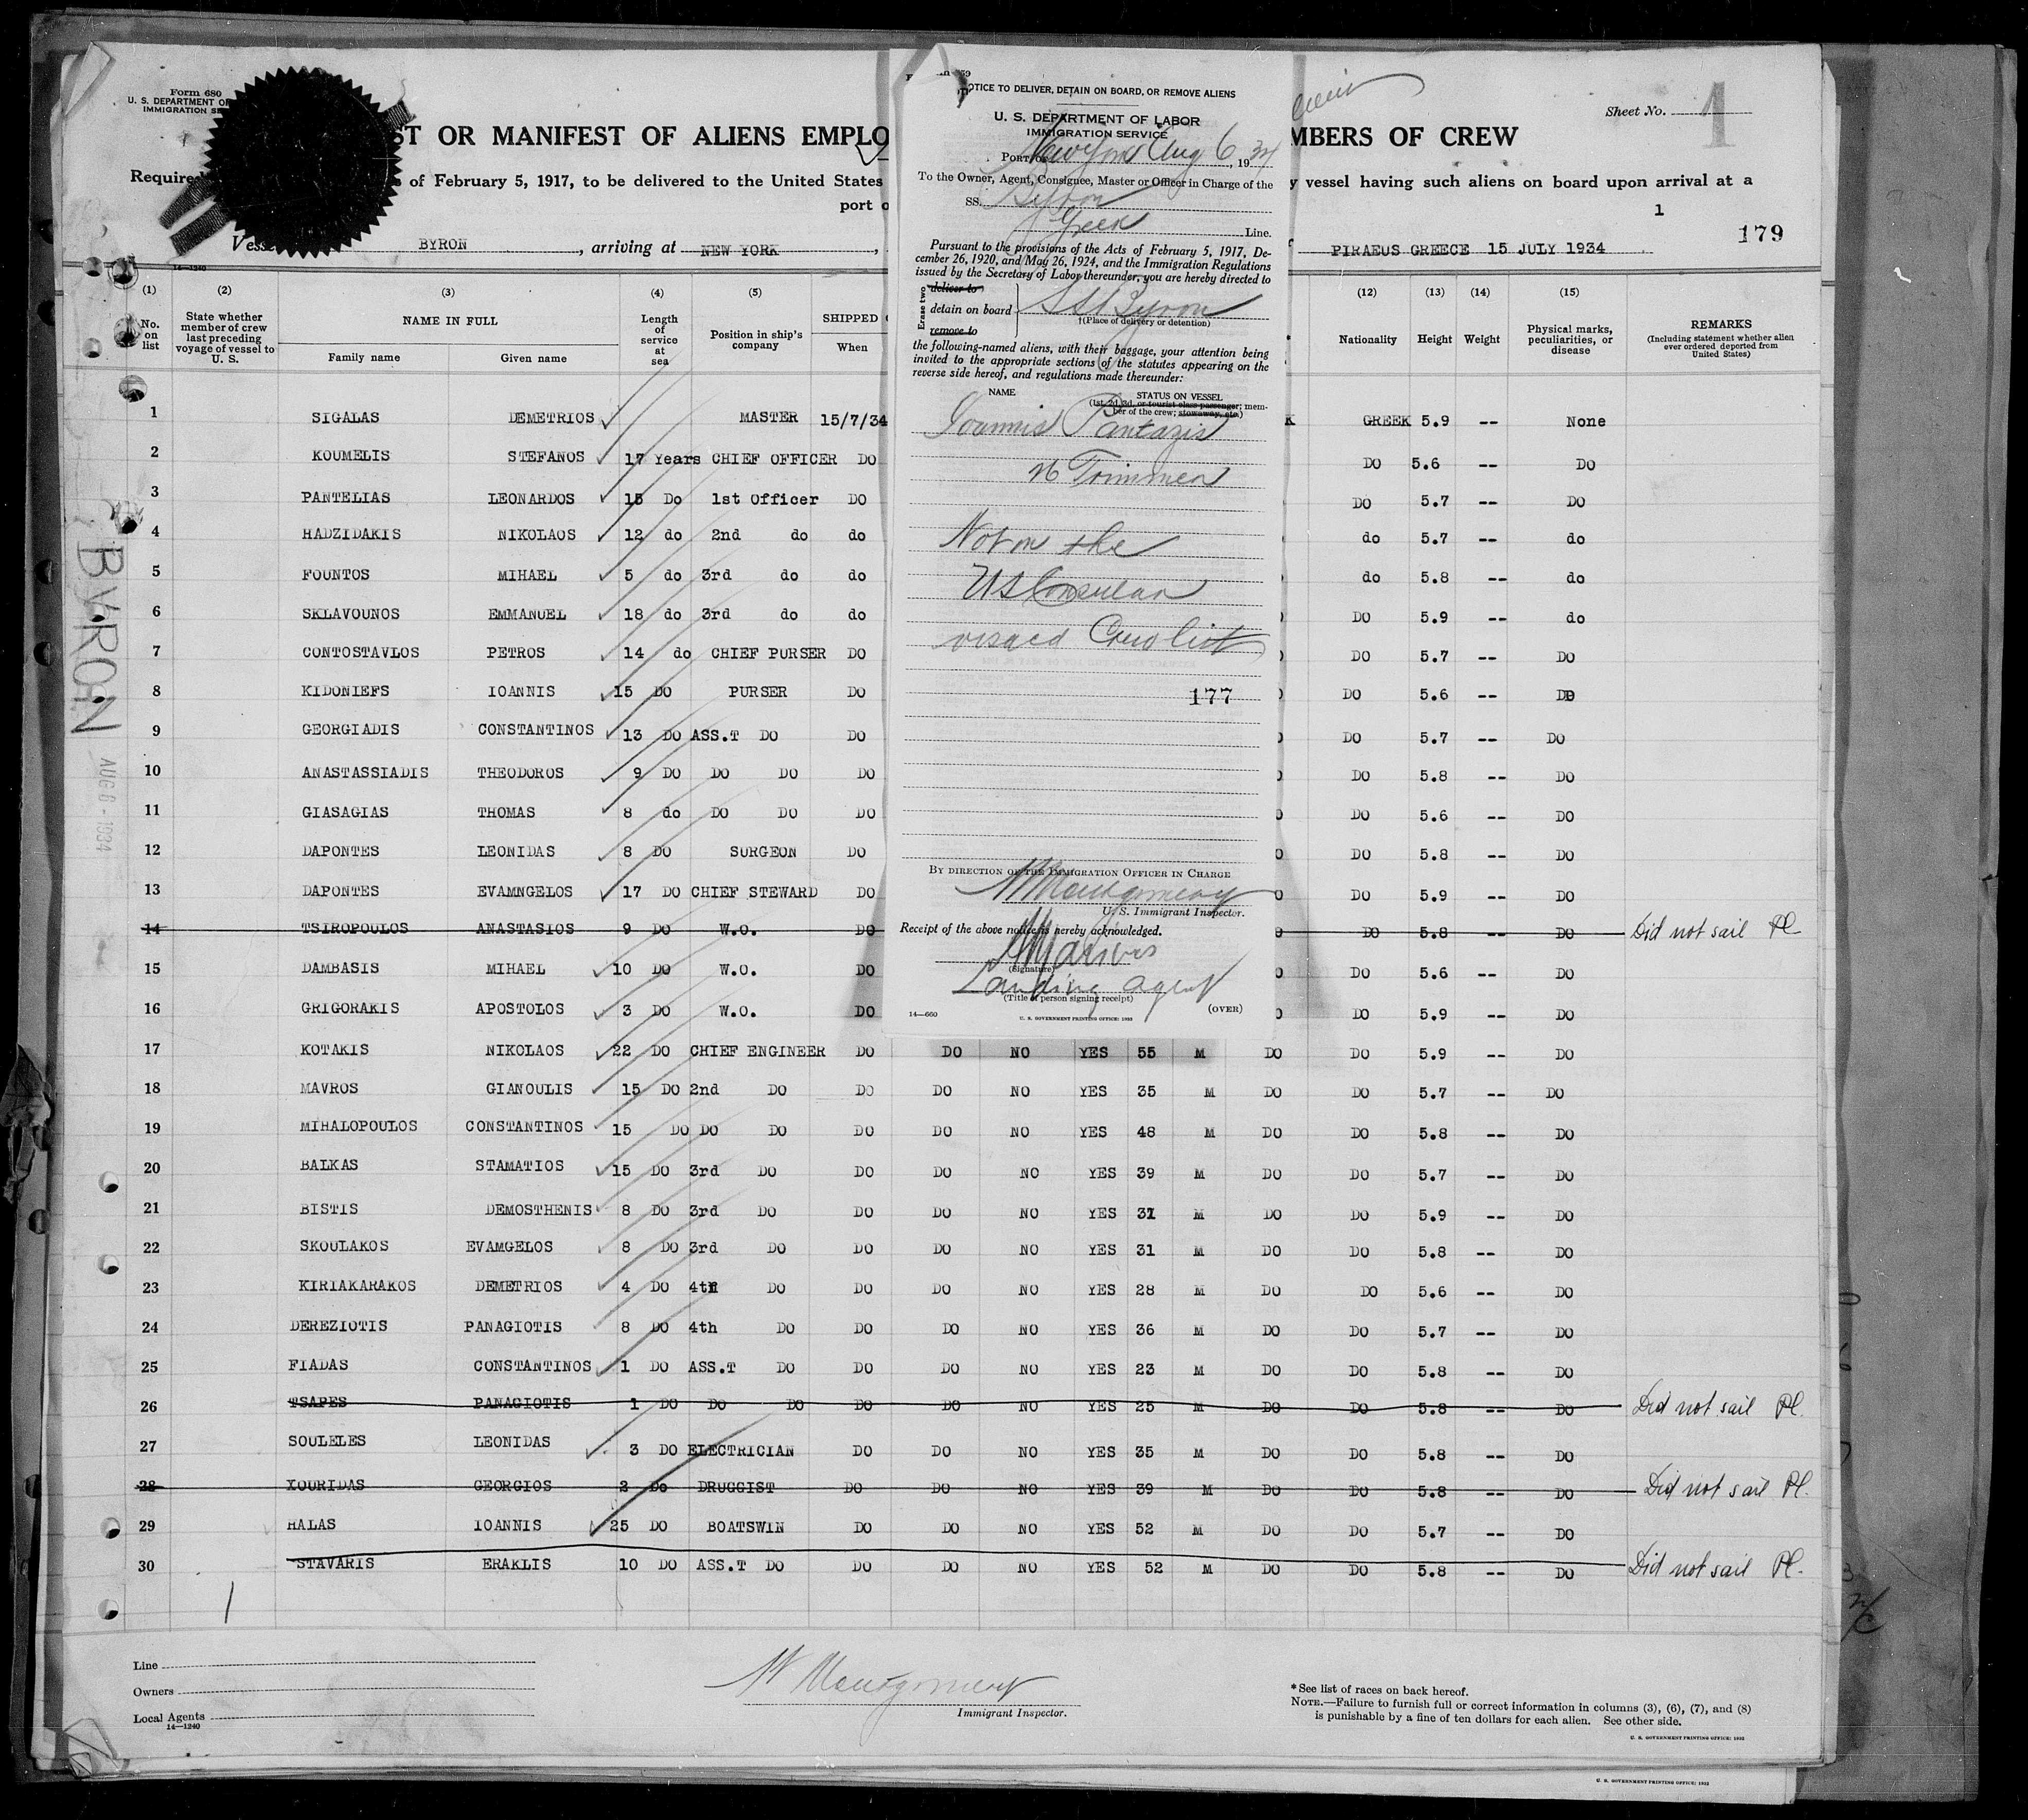 Form 680
U. S. DEPARTMENT OF
IMMIGRATION SE
ST OR MANIFEST OF ALIENS EMPLO
MBERS OF CREW
Sheet No. 1
Require
s of February 5, 1917, to be delivered to the United States
y vessel having such aliens on board upon arrival at a
port o
1
179
Vesse BYRON, arriving at NEW YORK,
PIRAEUS GREECE 15 JULY 1934
14—1240
(1) (2) (3) (4) (5) (12) (13) (14) (15)
No. on list
State whether member of crew last preceding voyage of vessel to U. S.
NAME IN FULL
Family name Given name
Length of service at sea
Position in ship's company
SHIPPED
When
Nationality Height Weight
Physical marks, peculiarities, or disease
REMARKS
(Including statement whether alien ever ordered deported from United States)
1 SIGALAS DEMETRIOS MASTER 15/7/34 K GREEK 5.9 -- None
2 KOUMELIS STEFANOS 17 Years CHIEF OFFICER DO DO 5.6 -- DO
3 PANTELIAS LEONARDOS 15 Do 1st Officer DO DO 5.7 -- DO
4 HADZIDAKIS NIKOLAOS 12 do 2nd do do do 5.7 -- do
5 FOUNTOS MIHAEL 5 do 3rd do do do 5.8 -- do
6 SKLAVOUNOS EMMANUEL 18 do 3rd do do DO 5.9 -- do
7 CONTOSTAVLOS PETROS 14 do CHIEF PURSER DO DO 5.7 -- DO
8 KIDONIEFS IOANNIS 15 DO PURSER DO DO 5.6 -- DO
9 GEORGIADIS CONSTANTINOS 13 DO ASS.T DO DO DO 5.7 -- DO
10 ANASTASSIADIS THEODOROS 9 DO DO DO DO DO 5.8 -- DO
11 GIASAGIAS THOMAS 8 do DO DO DO DO 5.6 -- DO
12 DAPONTES LEONIDAS 8 DO SURGEON DO DO 5.8 -- DO
13 DAPONTES EVAMNGELOS 17 DO CHIEF STEWARD DO DO 5.9 -- DO
14 TSIROPOULOS ANASTASIOS 9 DO W.O. DO DO 5.8 -- DO Did not sail Pl.
15 DAMBASIS MIHAEL 10 DO W.O. DO DO 5.6 -- DO
16 GRIGORAKIS APOSTOLOS 3 DO W.O. DO DO 5.9 -- DO
17 KOTAKIS NIKOLAOS 22 DO CHIEF ENGINEER DO DO NO YES 55 M DO DO 5.9 -- DO
18 MAVROS GIANOULIS 15 DO 2nd DO DO DO NO YES 35 M DO DO 5.7 -- DO
19 MIHALOPOULOS CONSTANTINOS 15 DO DO DO DO DO NO YES 48 M DO DO 5.8 -- DO
20 BALKAS STAMATIOS 15 DO 3rd DO DO DO NO YES 39 M DO DO 5.7 -- DO
21 BISTIS DEMOSTHENIS 8 DO 3rd DO DO DO NO YES 31 M DO DO 5.9 -- DO
22 SKOULAKOS EVAMGELOS 8 DO 3rd DO DO DO NO YES 31 M DO DO 5.8 -- DO
23 KIRIAKARAKOS DEMETRIOS 4 DO 4th DO DO DO NO YES 28 M DO DO 5.6 -- DO
24 DEREZIOTIS PANAGIOTIS 8 DO 4th DO DO DO NO YES 36 M DO DO 5.7 -- DO
25 FIADAS CONSTANTINOS 1 DO ASS.T DO DO DO NO YES 23 M DO DO 5.8 -- DO
26 TSAPES PANAGIOTIS 1 DO DO DO DO DO NO YES 25 M DO DO 5.8 -- DO Did not sail Pl.
27 SOULELES LEONIDAS 3 DO ELECTRICIAN DO DO NO YES 35 M DO DO 5.8 -- DO
28 XOURIDAS GEORGIOS 2 Do DRUGGIST DO DO NO YES 39 M DO DO 5.8 -- DO Did not sail Pl.
29 HALAS IOANNIS 25 DO BOATSWIN DO DO NO YES 52 M DO DO 5.7 -- DO
30 STAVARIS ERAKLIS 10 DO ASS.T DO DO DO NO YES 52 M DO DO 5.8 -- DO Did not sail Pl.
BYRON
AUG 6 - 1934
Line
Owners
Local Agents
14—1240
W Montgomery
Immigrant Inspector.
*See list of races on back hereof.
NOTE.—Failure to furnish full or correct information in columns (3), (6), (7), and (8)
is punishable by a fine of ten dollars for each alien. See other side.
U. S. GOVERNMENT PRINTING OFFICE: 1932
U. S. GOVERNMENT PRINTING OFFICE: 1932
OTICE TO DELIVER, DETAIN ON BOARD, OR REMOVE ALIENS
U. S. DEPARTMENT OF LABOR
IMMIGRATION SERVICE
Port of New York Aug 6, 1934
To the Owner, Agent, Consignee, Master or Officer in Charge of the
SS. Byron
Greek Line.
Pursuant to the provisions of the Acts of February 5, 1917, De-
cember 26, 1920, and May 26, 1924, and the Immigration Regulations
issued by the Secretary of Labor thereunder, you are hereby directed to
Erase two
deliver to
detain on board
remove to
SS Byron
†(Place of delivery or detention)
the following-named aliens, with their baggage, your attention being
invited to the appropriate sections of the statutes appearing on the
reverse side hereof, and regulations made thereunder:
NAME
STATUS ON VESSEL
(1st, 2d, 3d, or tourist class passenger; mem-
ber of the crew; stowaway, etc.)
Ioannis Pantazis
Trimmer
Not on the
US Consular
visaed Crew list
177
BY DIRECTION OF THE IMMIGRATION OFFICER IN CHARGE
W Montgomery
U. S. Immigrant Inspector.
Receipt of the above notice is hereby acknowledged.
(Signature)
Landing agent
(Title of person signing receipt)
(OVER)
14—660
U. S. GOVERNMENT PRINTING OFFICE: 1933